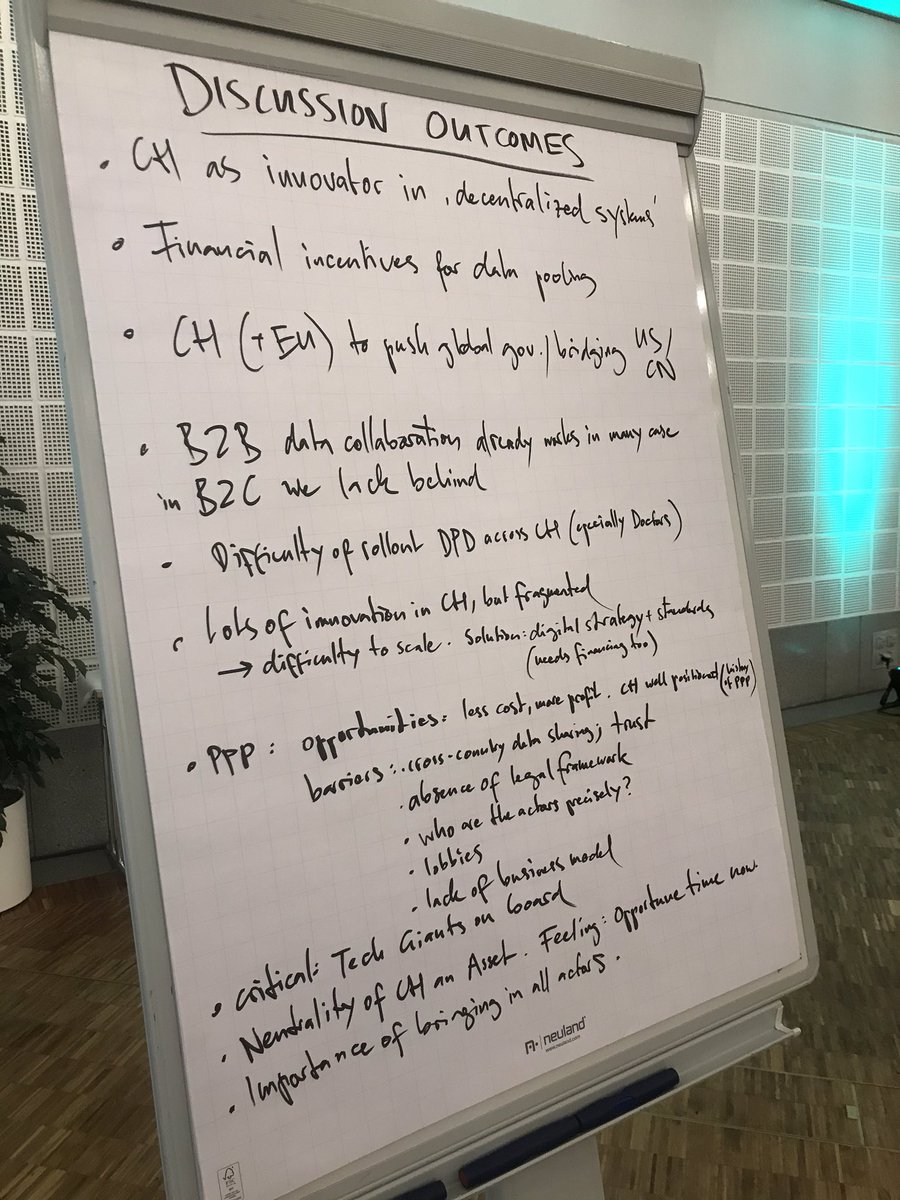 DISCUSSION OUTCOMES
• CH as innovator in ‚decentralized systems'
• Financial incentives for data pooling
• CH (+EU) to push global gov./bridging US/
CN
• B2B data collaboration already works in many case
in B2C we lack behind
• Difficulty of rollout DPD across CH (specially Doctors)
• Lots of innovation in CH, but fragmented
→ difficulty to scale. Solution: digital strategy + standards
(needs financing too)
• PPP: opportunities: less cost, more profit. CH well positioned (history
of PPP)
barriers: • cross-country data sharing; trust
• absence of legal framework
• who are the actors precisely?
• lobbies
• lack of business model
• critical: Tech Giants on board
• Neutrality of CH an Asset. Feeling: Opportune time now.
• Importance of bringing in all actors.
neuland
www.neuland.com
FSC